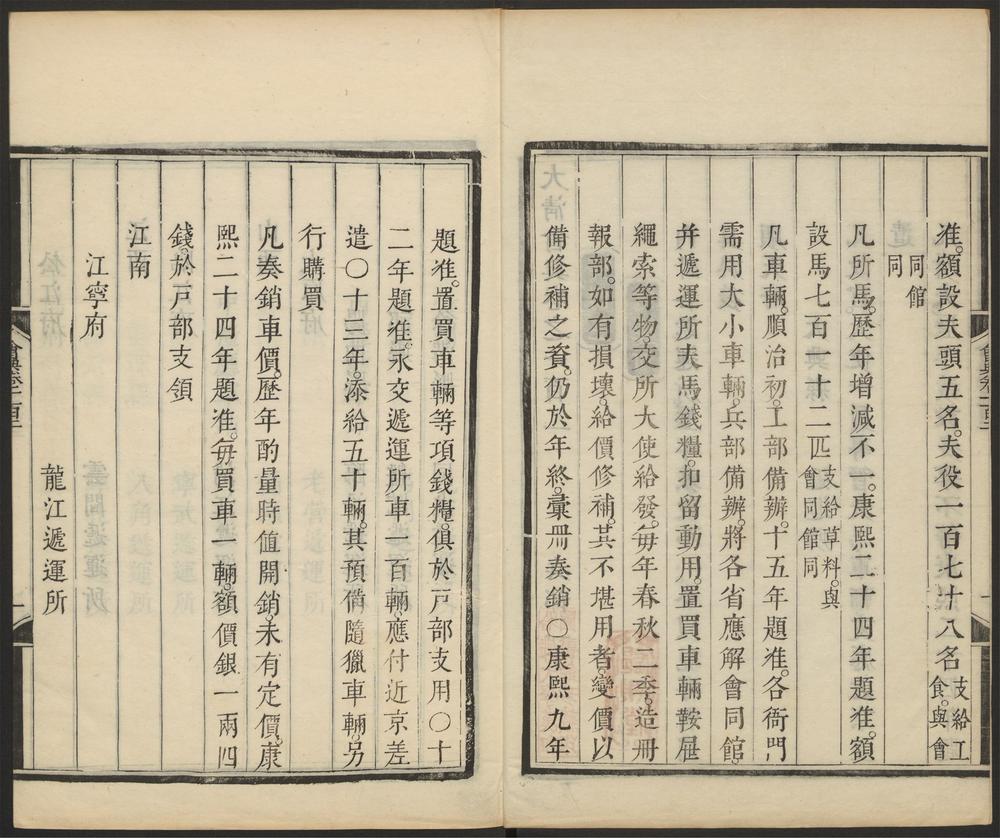 准。額設夫頭五名。夫役一百七十八名支給工食。與會
同館
同
凡所馬。歷年增減不一。康熙二十四年題准。額
設馬七百一十二匹支給草料。與會同館同
凡車輛。順治初。工部備辦。十五年題准。各衙門
需用大小車輛。兵部備辦。將各省應解會同館。
并遞運所夫馬。錢糧。扣留動用。置買車輛鞍屜
繩索等物。交所大使給發。每年春秋二季。造冊
報部。如有損壞。給價修補。其不堪用者。變價以
備修補之資。仍於年終。彙冊奏銷〇康熙九年
題准。置買車輛等項錢糧。俱於戶部支用〇十
二年題准。永交遞運所車一百輛。應付近京差
遣〇十三年。添給五十輛。其預備隨獵車輛。另
行購買
凡奏銷車價。歷年酌量時值開銷。未有定價。康
熙二十四年題准。每買車一輛。額價銀一兩四
錢。於戶部支領
江南
江寧府
龍江遞運所